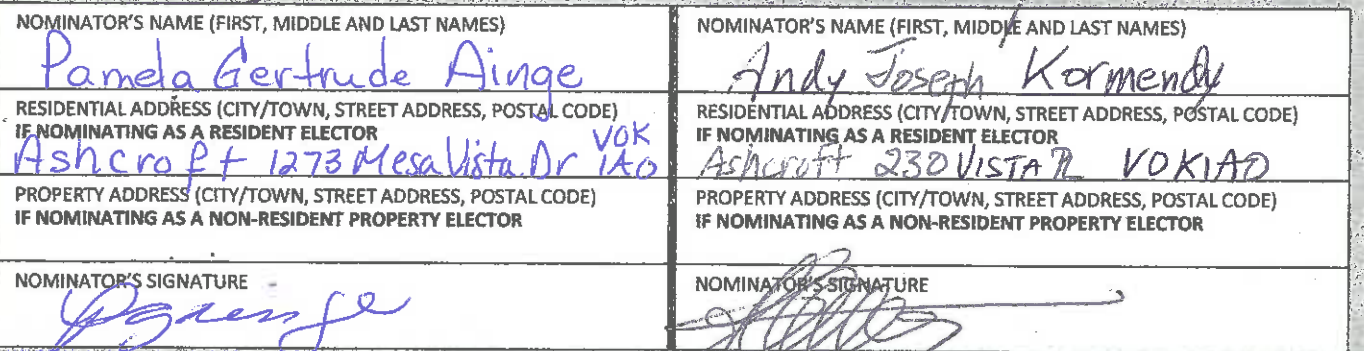 NOMINATOR'S NAME (FIRST, MIDDLE AND LAST NAMES)
Pamela Gertrude Ainge
RESIDENTIAL ADDRESS (CITY/TOWN, STREET ADDRESS, POSTAL CODE)
IF NOMINATING AS A RESIDENT ELECTOR
Ashcroft 1273 Mesa Vista Dr V0K 1A0
PROPERTY ADDRESS (CITY/TOWN, STREET ADDRESS, POSTAL CODE)
IF NOMINATING AS A NON-RESIDENT PROPERTY ELECTOR
NOMINATOR'S SIGNATURE
NOMINATOR'S NAME (FIRST, MIDDLE AND LAST NAMES)
Andy Joseph Kormendy
RESIDENTIAL ADDRESS (CITY/TOWN, STREET ADDRESS, POSTAL CODE)
IF NOMINATING AS A RESIDENT ELECTOR
Ashcroft 230 VISTA V0K1A0
PROPERTY ADDRESS (CITY/TOWN, STREET ADDRESS, POSTAL CODE)
IF NOMINATING AS A NON-RESIDENT PROPERTY ELECTOR
NOMINATOR'S SIGNATURE